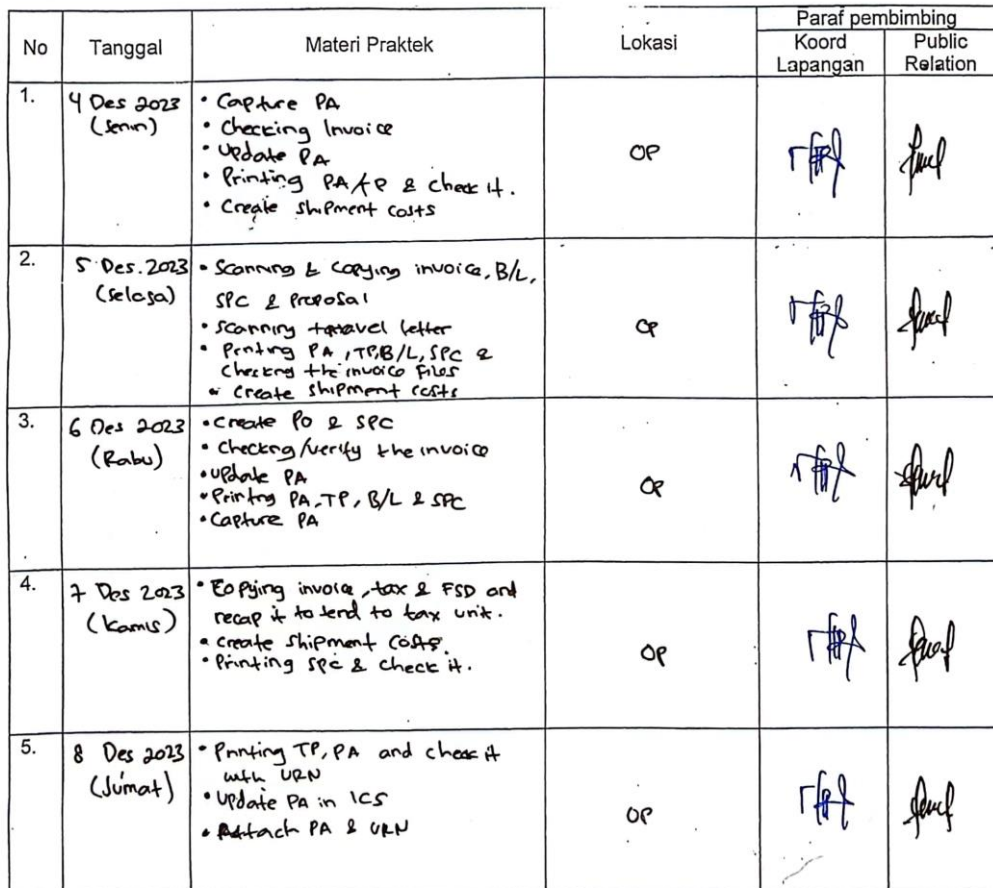 No Tanggal Materi Praktek Lokasi Paraf pembimbing
Koord Lapangan Public Relation
1. 4 Des 2023 (Senin)
• Capture PA
• Checking Invoice
• Update PA
• Printing PA & check it.
• Create shipment costs
OP
2. 5 Des. 2023 (Selasa)
• Scanning & Copying invoice, B/L,
SPC & proposal
• Scanning travel letter
• Printing PA, TP, B/L, SPC &
checking the invoice files
• create shipment costs
OP
3. 6 Des 2023 (Rabu)
• Create PO & SPC
• Checking/verify the invoice
• Update PA
• Printing PA, TP, B/L & SPC
• Capture PA
OP
4. 7 Des 2023 (Kamis)
• Copying invoice, tax & FSD and
recap it to send to tax unit.
• create shipment costs.
• Printing SPC & check it.
OP
5. 8 Des 2023 (Jumat)
• Printing TP, PA and check it
with URN
• Update PA in ICS
• Attach PA & URN
OP